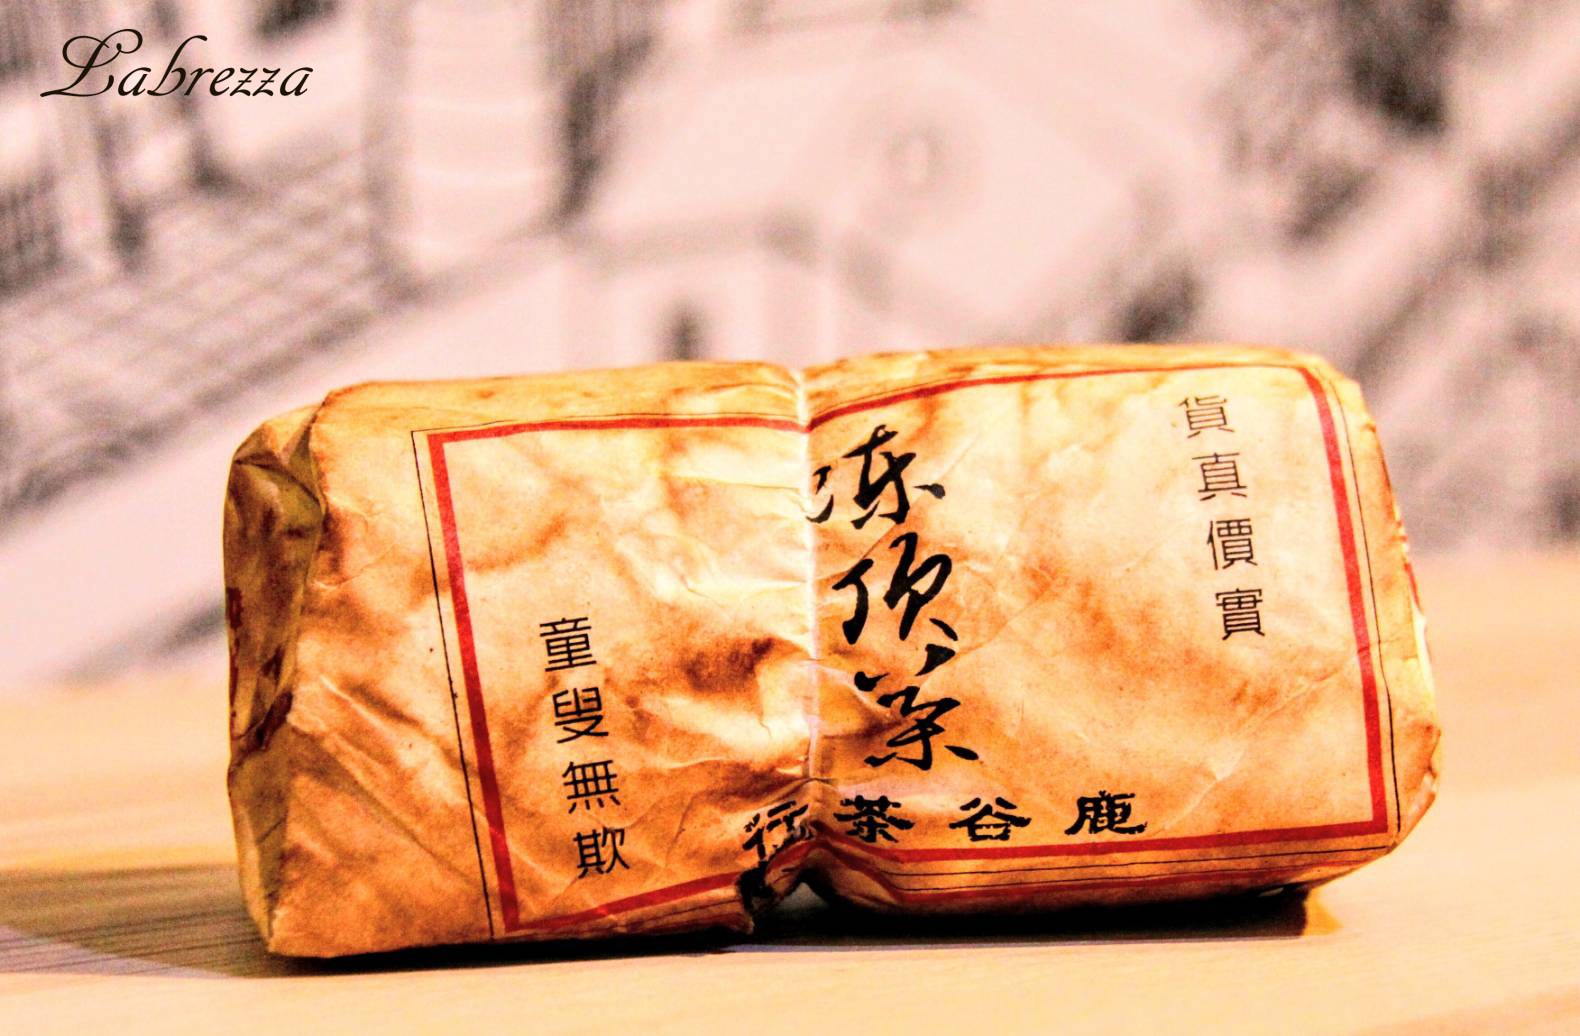 Labrezza
貨真價實
凍頂茶
童叟無欺
鹿谷茶行